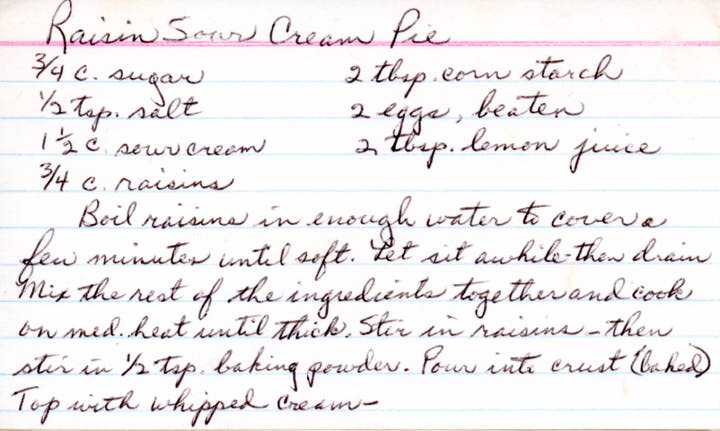 Raisin Sour Cream Pie
3/4 c. sugar 2 tbsp. corn starch
1/2 tsp. salt 2 eggs, beaten
1 1/2 c. sour cream 2 tbsp. lemon juice
3/4 c. raisins
Boil raisins in enough water to cover a
few minutes until soft. Let sit awhile - then drain
Mix the rest of the ingredients together and cook
on med. heat until thick. Stir in raisins - then
stir in 1/2 tsp. baking powder. Pour into crust (baked)
Top with whipped cream -